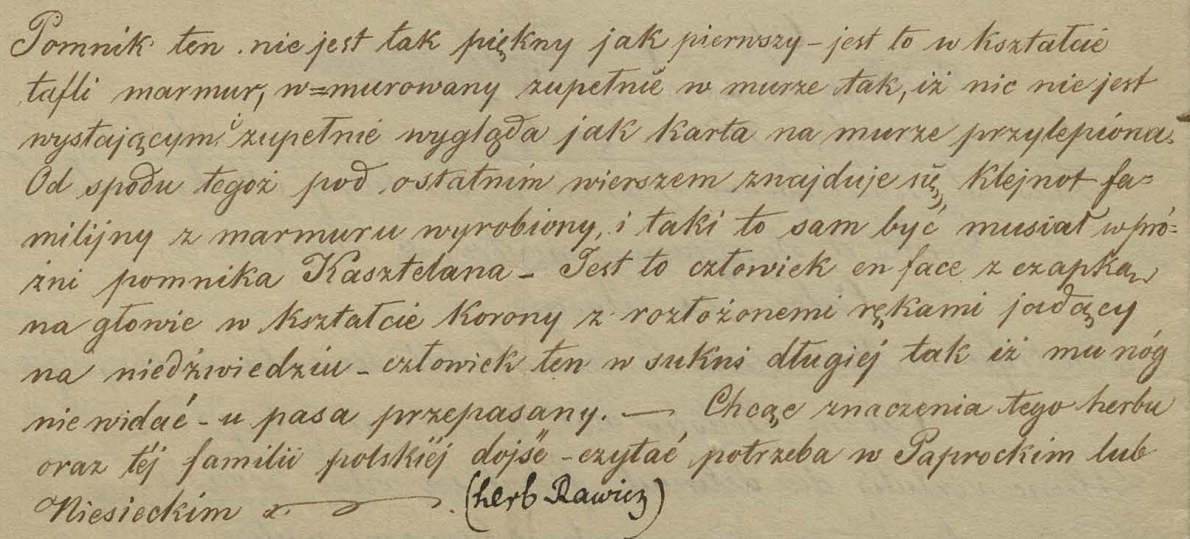 Pomnik ten nie jest tak piękny jak pierwszy – jest to w kształcie
tafli marmur, w=murowany zupełnie w murze tak, iż nic nie jest
wystającym i zupełnie wygląda jak karta na murze przylepiona.
Od spodu tegoż pod ostatnim wierszem znajduje się, klejnot fa=
milijny z marmuru wyrobiony, i taki to sam być musiał w pró=
żni pomnika Kasztelana – Jest to człowiek en face z czapką,
na głowie w kształcie korony z rozłożonemi rękami jadący
na niedźwiedziu – człowiek ten w sukni długiéj tak iż mu nóg
nie widać – u pasa przepasany. — Chcąc znaczenia tego herbu
oraz téj familii polskiéj dojść – czytać potrzeba w Paprockim lub
Niesieckim (herb Rawicz)